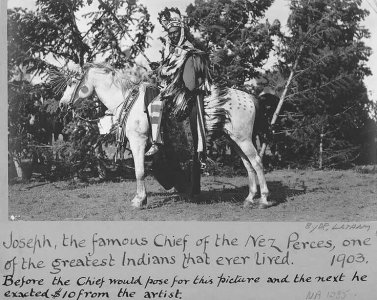 By Dr. LATHAM
Joseph, the famous Chief of the Nez Perces, one
of the greatest Indians that ever lived. 1903.
Before the Chief would pose for this picture and the next he
exacted $10 from the artist.
NA 1085